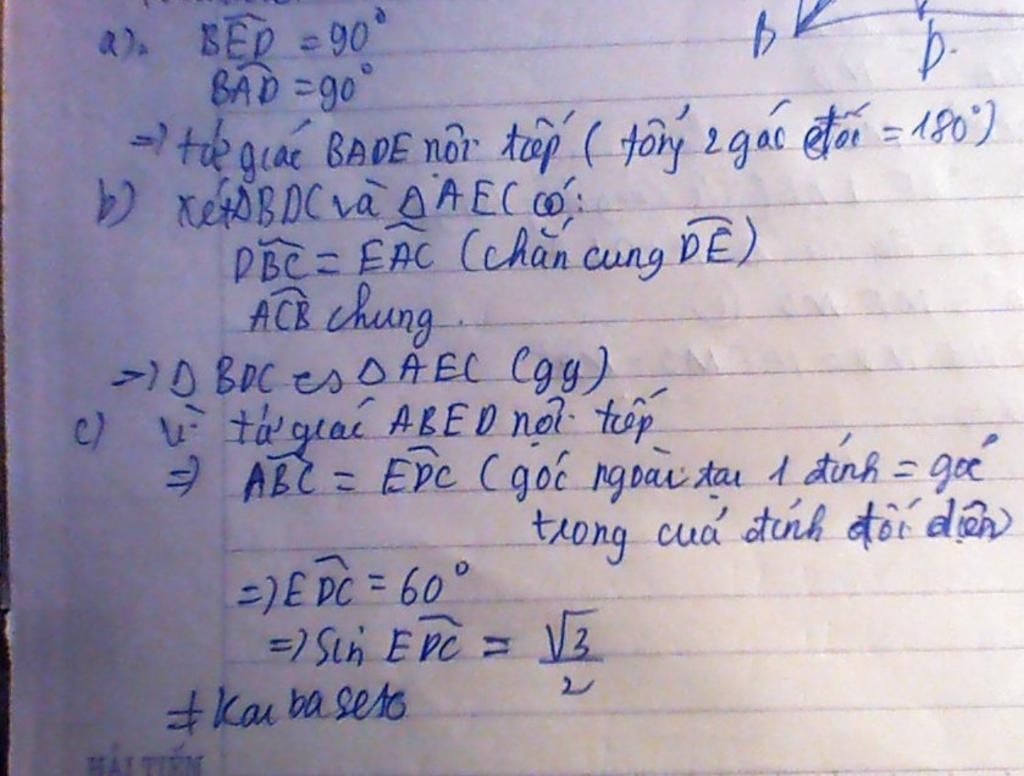 B
D.
a). BED̂ = 90°
BAD̂ = 90°
=> tứ giác BADE nội tiếp ( tổng 2 góc đối = 180°)
b) xét ΔBDC và ΔAEC có:
DBĈ = EAĈ (chắn cung DE)
ACB̂ chung.
=> Δ BDC ∽ Δ AEC (gg)
c) vì tứ giác ABED nội tiếp
=> ABĈ = EDĈ (góc ngoài tại 1 đỉnh = góc
trong của đỉnh đối diện)
=> EDĈ = 60°
=> Sin EDĈ = √3/2
HẢI TIẾN